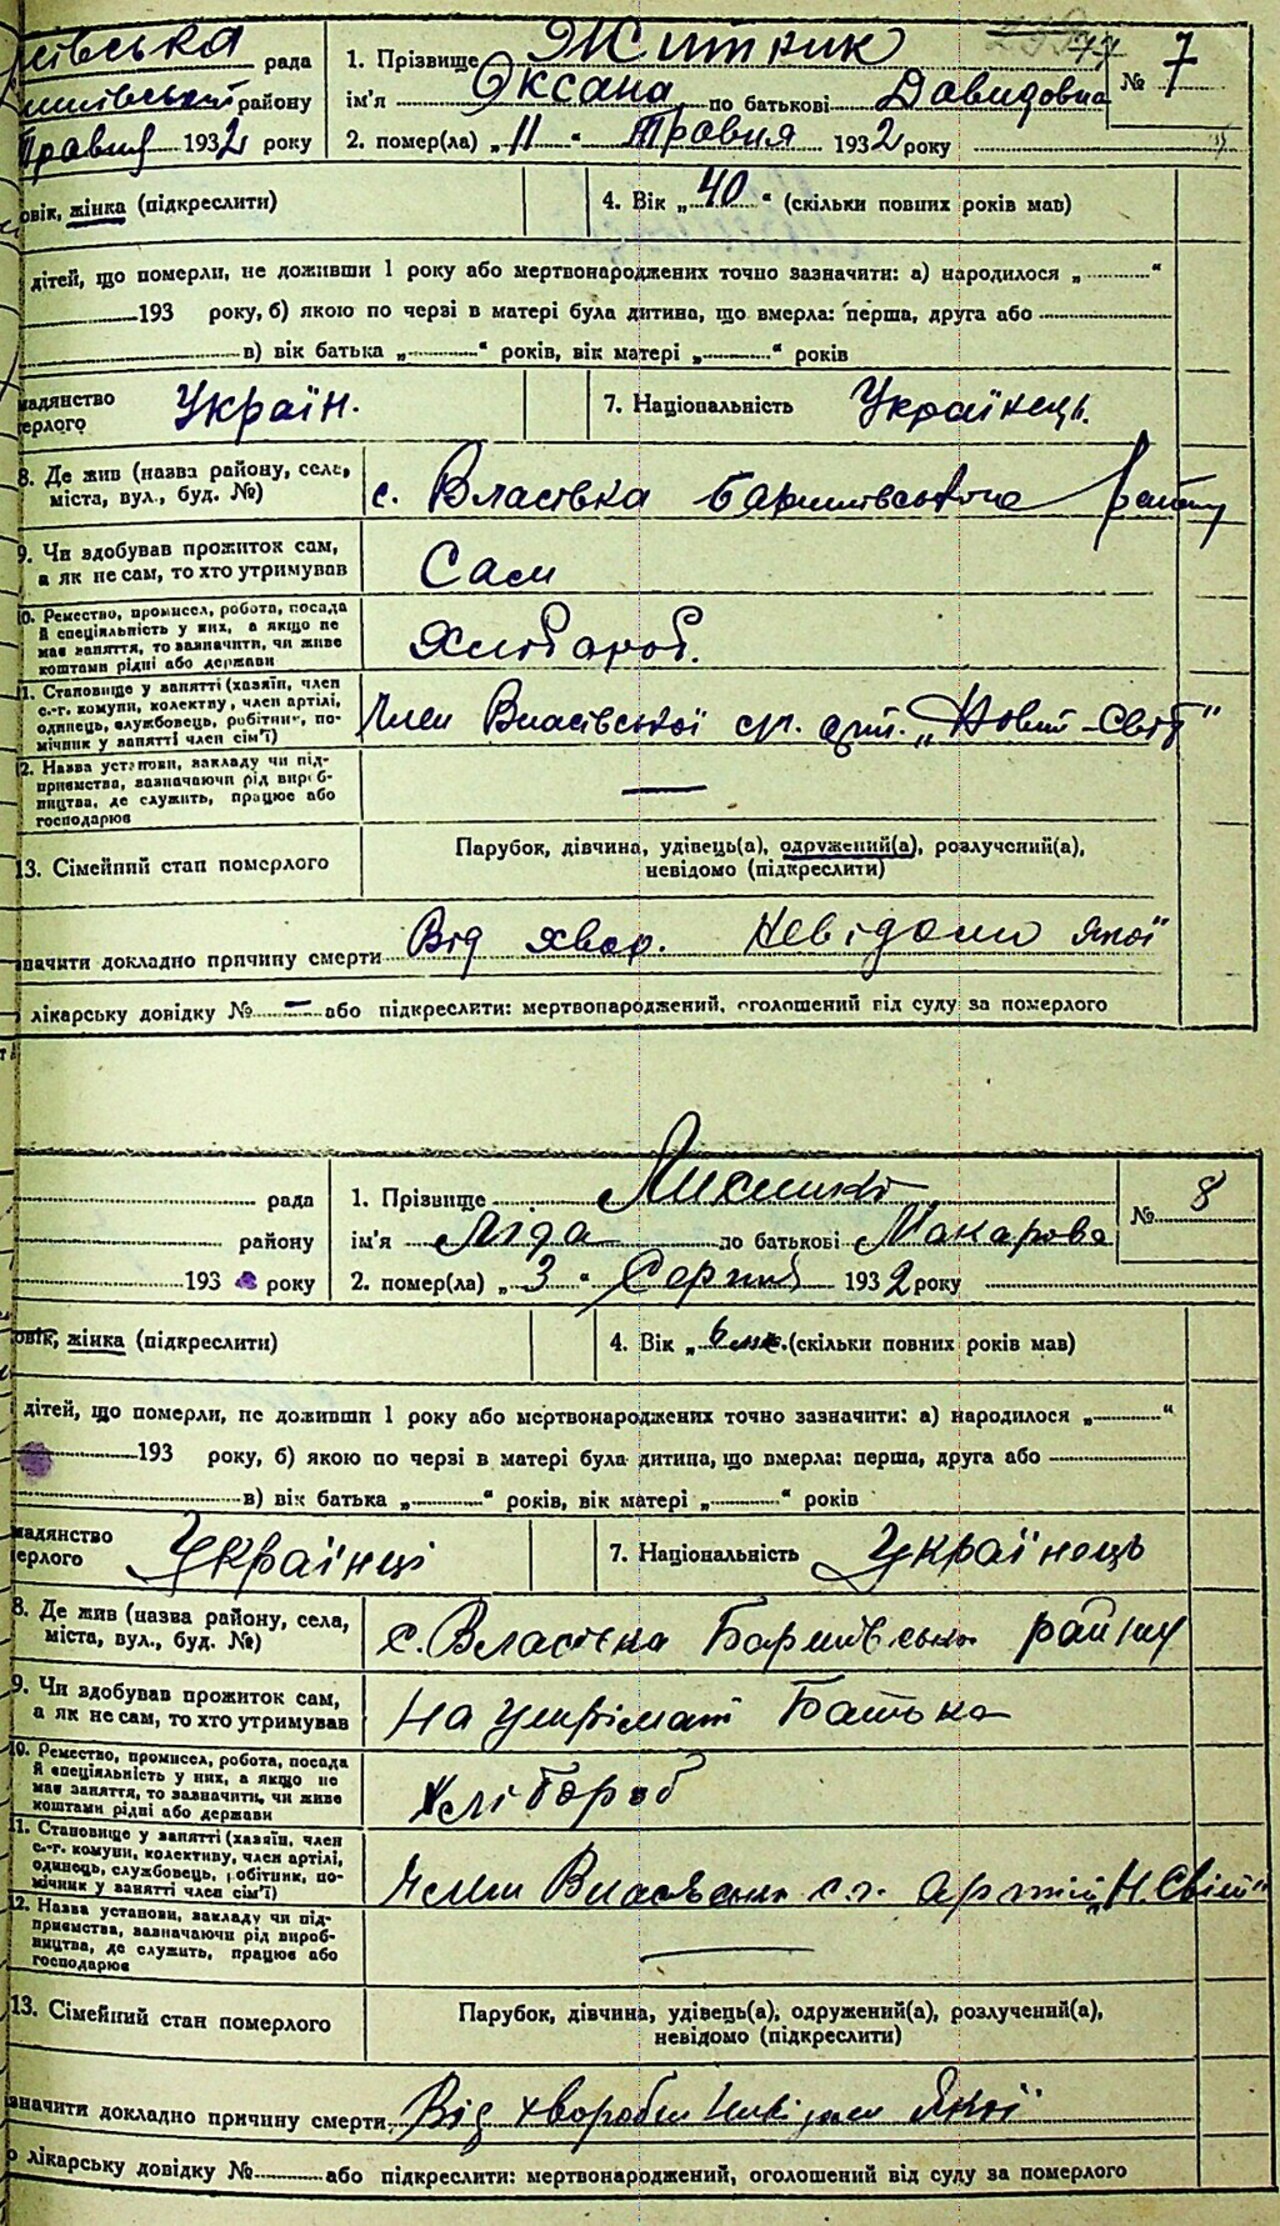 рада
1. Прізвище Житник
№ 7
району
ім'я Оксана по батькові Давидовна
Травня 1932 року
2. помер(ла) „11" Травня 1932 року
овік, жінка (підкреслити)
4. Вік „40" (скільки повних років мав)
дітей, що померли, не доживши 1 року або мертвонароджених точно зазначити: а) народилося „ "
193 року, б) якою по черзі в матері була дитина, що вмерла: перша, друга або
в) вік батька „ " років, вік матері „ " років
мадянство
ерлого
Україн.
7. Національність Українець.
8. Де жив (назва району, села,
міста, вул., буд. №)
с. Власівка Баришівського району
9. Чи здобував прожиток сам,
а як не сам, то хто утримував
Сам
10. Ремество, промисел, робота, посада
й спеціяльність у них, а якщо не
має заняття, то зазначити, чи живе
коштами рідні або держави
Хлібороб.
11. Становище у занятті (хазяїн, член
с.-г. комуни, колективу, член артілі,
одинець, службовець, робітник, по-
мічник у занятті член сім'ї)
Член Власівської с.г. арт. „Новий-Світ"
12. Назва установи, закладу чи під-
приємства, зазначаючи рід вироб-
ництва, де служить, працює або
господарює
—
13. Сімейний стан померлого
Парубок, дівчина, удівець(а), одружений(а), розлучений(а),
невідомо (підкреслити)
значити докладно причину смерти Від хвор. невідомо якої
лікарську довідку № – або підкреслити: мертвонароджений, оголошений від суду за померлого
рада
1. Прізвище
№ 8
району
ім'я Ліда по батькові Макарова
193 року
2. помер(ла) „3" Серпня 1932 року
овік, жінка (підкреслити)
4. Вік „6 міс. (скільки повних років мав)
дітей, що померли, не доживши 1 року або мертвонароджених точно зазначити: а) народилося „ "
193 року, б) якою по черзі в матері була дитина, що вмерла: перша, друга або
в) вік батька „ " років, вік матері „ " років
мадянство
ерлого
Українці
7. Національність Українець
8. Де жив (назва району, села,
міста, вул., буд. №)
с. Власівка Баришівськ району
9. Чи здобував прожиток сам,
а як не сам, то хто утримував
На утрімані Батька
10. Ремество, промисел, робота, посада
й спеціяльність у них, а якщо не
має заняття, то зазначити, чи живе
коштами рідні або держави
Хлібороб
11. Становище у занятті (хазяїн, член
с.-г. комуни, колективу, член артілі,
одинець, службовець, робітник, по-
мічник у занятті член сім'ї)
Член Власівськи с.г. артілі „Н. Світ"
12. Назва установи, закладу чи під-
приємства, зазначаючи рід вироб-
ництва, де служить, працює або
господарює
—
13. Сімейний стан померлого
Парубок, дівчина, удівець(а), одружений(а), розлучений(а),
невідомо (підкреслити)
значити докладно причину смерти Від хвороби якої
о лікарську довідку № або підкреслити: мертвонароджений, оголошений від суду за померлого